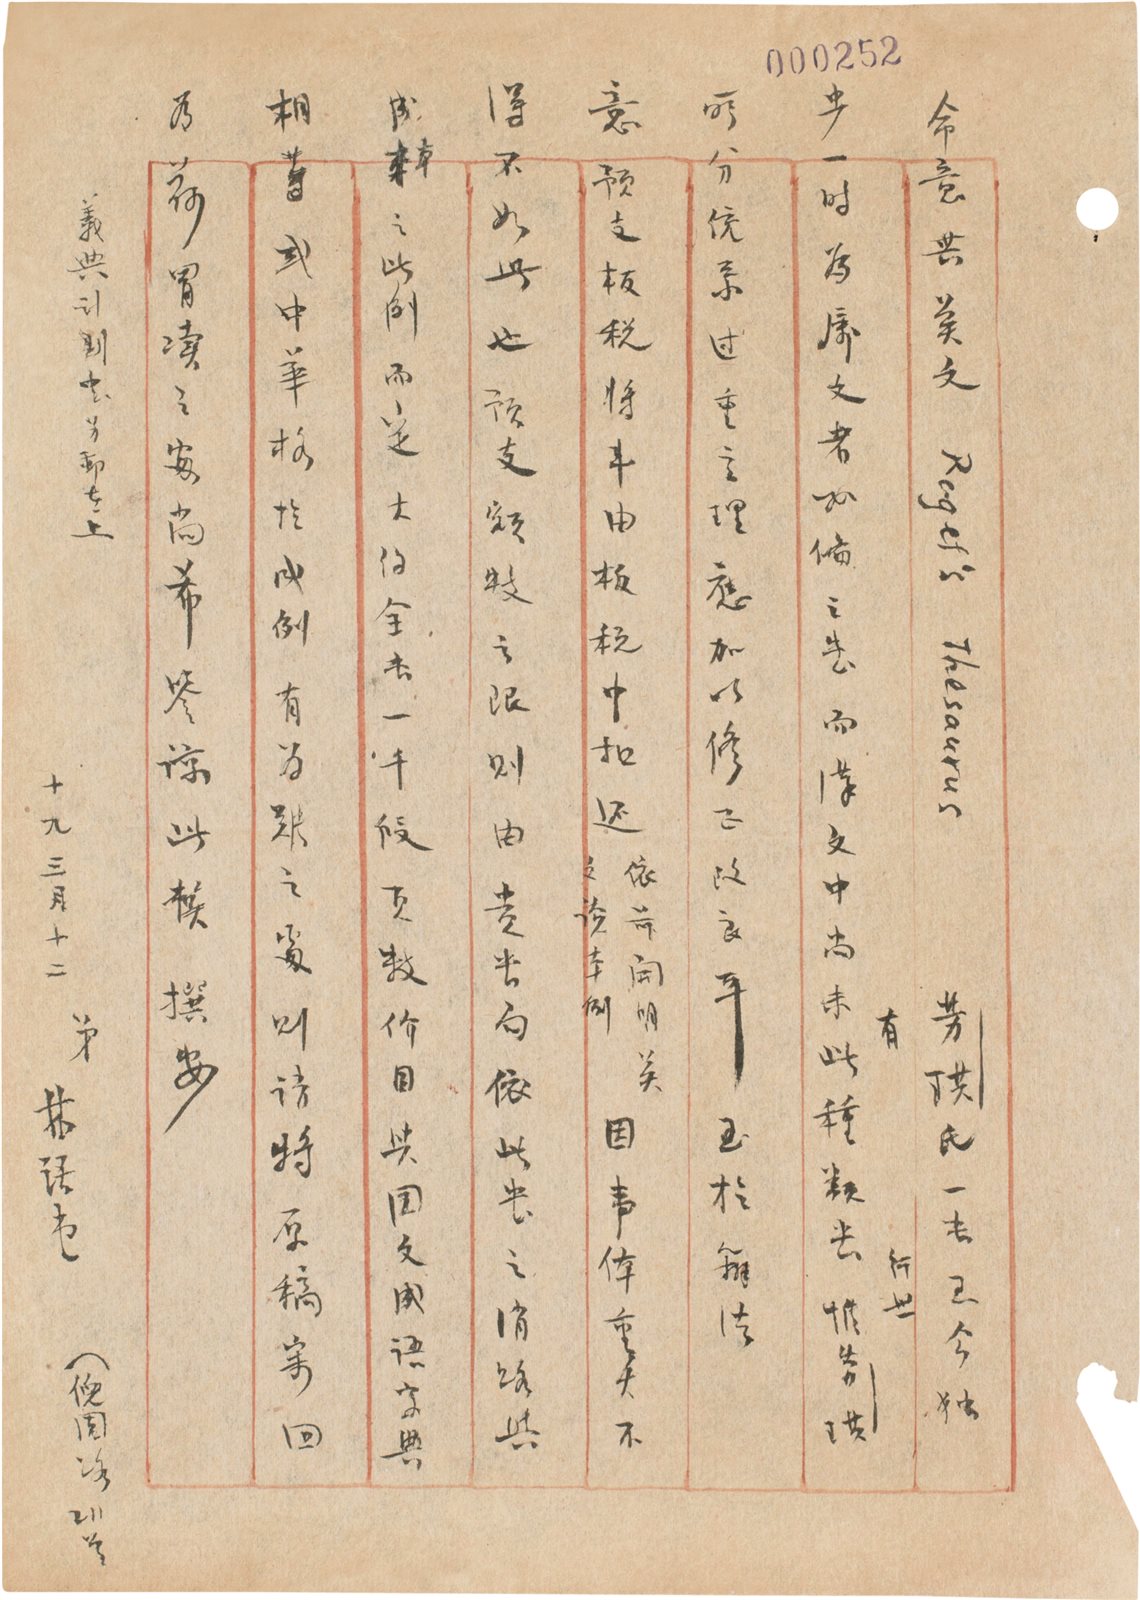 000252
命意与英文 Roget's Thesaurus 劳琪氏一书至今独
步一时为属文者必备之书而汉文中尚未有此种类书行世惟劳琪
所分统系过重主理应加以修正改良耳至于办法
意预支板税将来由板税中扣还依前开明关之谈本例因事体重大不
得不如此也预支额数之限则由贵书局依此书之消路与
成本之比例而定大约全书一千余页数价目与国文成语字典
相若或中华格于成例有为难之处则请将原稿寄回
为荷冒渎之安尚希鉴谅此颂撰安
十九三月十二 弟林语堂
义典计划书另邮寄上